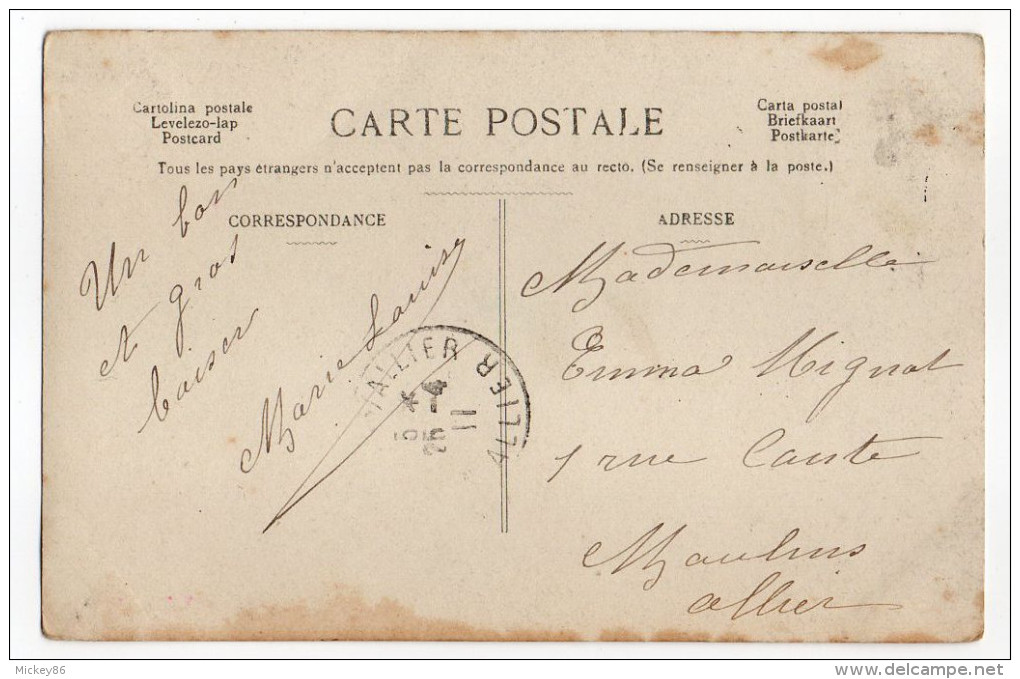 Cartolina postale
Levelezo-lap
Postcard
CARTE POSTALE
Carta postal
Briefkaart
Postkarte
Tous les pays étrangers n'acceptent pas la correspondance au recto. (Se renseigner à la poste.)
CORRESPONDANCE
ADRESSE
Un bon
et gros
baiser
Marie Louise
ALLIER
ALLIER
25 - 4
11
Mademoiselle
Emma Mignot
1 rue
Moulins
Allier
Mickey86
www.delcampe.net